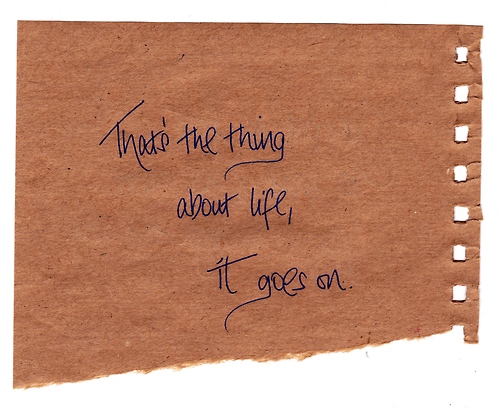 That's the thing
about life,
it goes on.